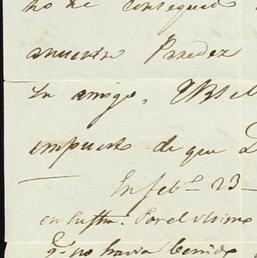 no he conseguido
nuestro Paredez
tu amigo,
impuesto de que
En feb.º 23 —
Por el ultimo
q.e no havia venido